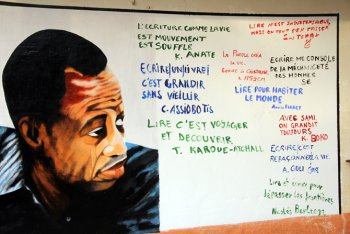 L'ECRITURE COMME LA VIE
EST MOUVEMENT
EST SOUFFLE
K. ANATE
ECRIRE (UN) LIVRE
C'EST GRANDIR
SANS VIEILLIR
C. ASSIOBOTIS
LIRE C'EST VOYAGER
ET DECOUVRIR
T. KAROUE-ATCHALL
LA PAROLE CREA
LA VIE.
LIRE N'EST INDISPENSABLE,
MAIS ON PEUT S'EN PASSER
ECRIRE ME CONSOLE
DE LA MECHANCETE
DES HOMMES
SE
LIRE POUR HABITER
LE MONDE
AVEC SAMI
ON GRANDIT
TOUJOURS
K. BOKO
ECRIRE, C'EST
REFAÇONNER LA VIE.
A. GOLI
Lire et écrire pour
dépasser les frontières
Nicolas Bertrand